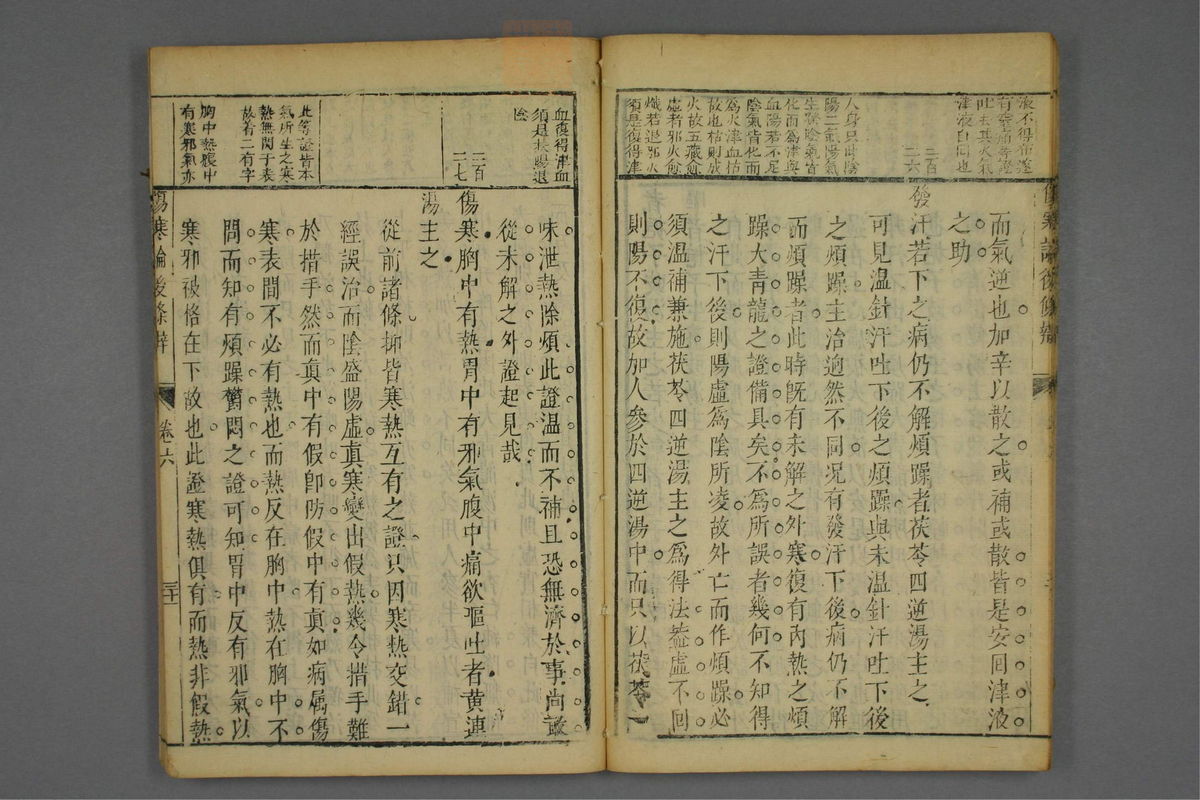 液不得布遂
有發痛等證
吐去其火氣
津液自回也
三百
二六
人身只此陰
陽二氣陽氣
生發陰氣皆
化而為津與
血陽若不足
陰氣皆化而
為火津血枯
故也枯則成
火故五藏愈
虛者邪火愈
熾若退邪火
須是復得津
而氣逆也加辛以散之或補或散皆是安回津液
之助
發汗若下之病仍不解煩躁者茯苓四逆湯主之
可見温針汗吐下後之煩躁與未温針汗吐下後
之煩躁主治逈然不同况有發汗下後病仍不解
而煩躁者此時既有未解之外寒復有内熱之煩
躁大青龍之證備具矣不為所誤者幾何不知得
之汗下後則陽虛為陰所凌故外亡而作煩躁必
須温補兼施茯苓四逆湯主之為得法葢虛不回
則陽不復故加人參於四逆湯中而只以茯苓一
血復得津血
須是扶陽退
陰
二百
二七
此等證皆本
氣所生之寒
熱無関于表
故着二有字
胸中熱腹中
有寒邪氣亦
味泄熱除煩此證温而不補且恐無濟於事尚敢
從未解之外證起見哉
傷寒胸中有熱胃中有邪氣腹中痛欲嘔吐者黄連
湯主之
從前諸條抑皆寒熱互有之證只因寒熱交錯一
經誤治而陰盛陽虛眞寒變出假熱幾令措手難
於措手然而眞中有假卽防假中有眞如病属傷
寒表間不必有熱也而熱反在胸中熱在胸中不
問而知有煩躁鬱悶之證可知胃中反有邪氣以
寒邪被格在下故也此證寒熱俱有而熱非假熱
傷寒論後條辨
卷六